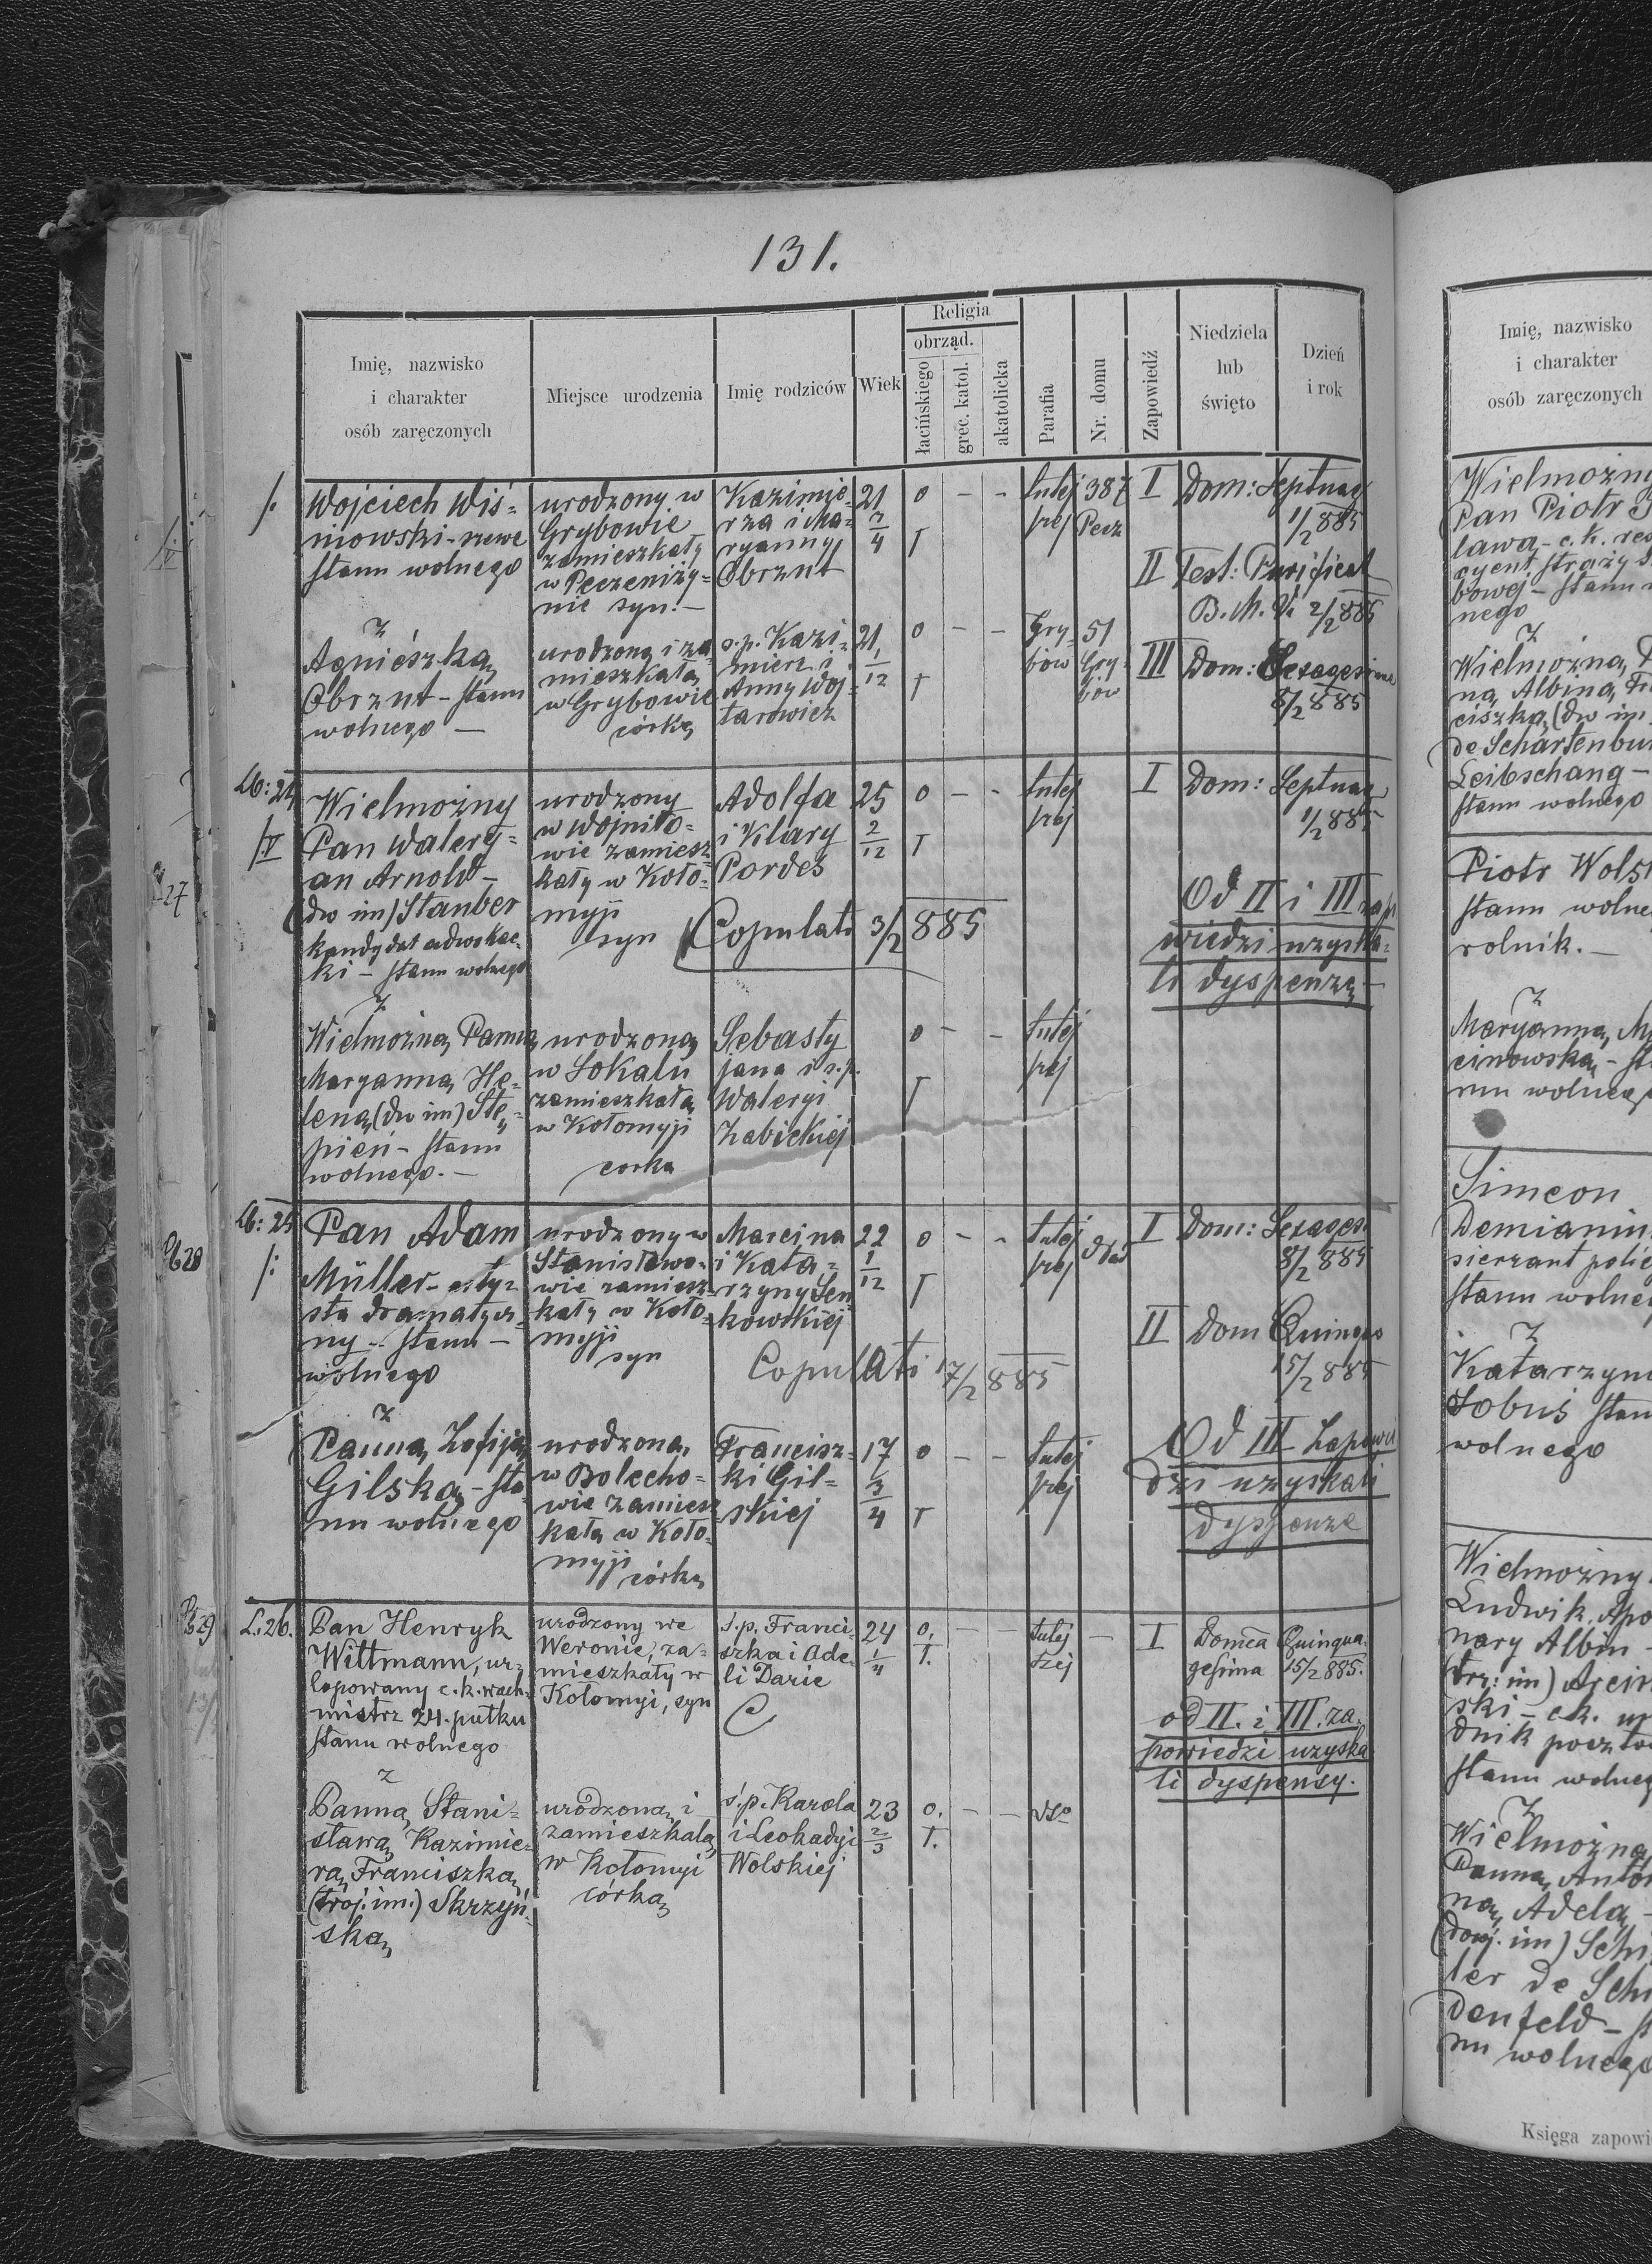 131.
Imię, nazwisko
i charakter
osób zaręczonych
Miejsce urodzenia
Imię rodziców
Wiek
Religia
obrząd.
łacińskiego
grec. katol.
akatolicka
Parafia
Nr. domu
Zapowiedź
Niedziela
lub
święto
Dzień
i rok
Wojciech Wiś=
niowski - szewc
stanu wolnego
urodzony w
Grybowie
zamieszkały
w Peczeniży=
nie syn. -
Kazimie=
rza i Ma=
ryanny
Obrzut
21
3/4
o
-
-
T
tutej
szej
387
Pecz
I Dom: Septuag
1/2 885
II Fest: Purificat
B. M. V. 2/2 885
III Dom: Sexagesime
8/2 885
z
Agnieszką
Obrzut - stanu
wolnego -
urodzoną i za=
mieszkałą
w Grybowie
córką
s.p. Kazi=
mierz i
Anny Woj=
tarowicz
21
1/12
o
-
-
T
Gry=
bów
51
Gry=
bów
Lb: 24
IV
Wielmożny
Pan Walery=
an Arnold -
(dw im) Stauber
kandydat adwokac=
ki - stanu wolnego
urodzony
w Wojniło=
wie zamiesz=
kały w Koło=
myji
syn
Adolfa
i Klary
Pordes
25
2/12
o
-
-
T
tutej
szej
I Dom: Septuag
1/2 885
Copulati 3/2 885
Od II i III zapo
wiedzi uzyska=
li dyspenzę -
z
Wielmożną Panną
Maryanną He=
leną (dw im) Stę=
pień - stanu
wolnego. -
urodzoną
w Sokalu
zamieszkałą
w Kołomyji
corka
Sebasty
jana i s.p.
Waleryi
Żabickiej
o
-
-
T
tutej
szej
Lb: 25
Pan Adam
Müller - arty=
sta dramatycz=
ny - stanu -
wolnego
urodzony w
Stanisławo=
wie zamiesz=
kały w Koło=
myji
syn
Marcina
i Kata=
rzyny Sen
kowskiej
22
1/12
o
-
-
T
tutej
szej
I Dom: Sexages
8/2 885
II Dom Quinqua
15/2 885
Copulati 17/2 885
Od III Zapowie
dzi uzyskali
dyspenze
z
Panną Zofiją
Gilską - sta=
nu wolnego
urodzoną
w Bolecho=
wie zamiesz
kałą w Koło=
myji
córką
Francisz=
ki Gil=
skiej
17
3/4
o
-
-
T
tutej
szej
L. 26.
Pan Henryk
Wittmann, ur=
lopowany c. k. wach=
mistrz 24. pułku
stanu wolnego
urodzony we
Weronie, za=
mieszkały w
Kołomyi, syn
ś.p. Franci=
szka i Ade=
li Darie
24
1/4
o.
T.
-
-
tutej
szej
-
I Domca Quinqua=
gesima 15/2 885.
od II. i III. za=
powiedzi uzyska
li dyspensy.
z
Panną Stani=
sławą Kazimie=
rą Franciszką
(troj. im.) Skrzyń=
ską
urodzoną i
zamieszkałą
w Kołomyi
córką
ś.p. Karola
i Leokadyi
Wolskiej
23
2/3
o.
T.
-
-
dto
27
Lb 28
Imię, nazwisko
i charakter
osób zaręczonych
Wielmożny
Pan Piotr
z
Wielmożną
ną Albiną
(dw im
de Schartenbur
Leibschang -
stanu wolnego
Piotr Wolsk
stanu wolneg
rolnik. -
z
Maryanną
cinowską - st
nu wolnego
Simeon
Demianiu
sierzant polic
stanu wolneg
z
Katarzyn
Sobuś stan
wolnego
Wielmożny
Ludwik, Apo
nary Albin -
ski - c.k. u
dnik poczto
stanu wolneg
z
Wielmożną
Panną Anto
ną, Adelą -
ler de Sch
denfeld - s
nu wolnego
Księga zapowi